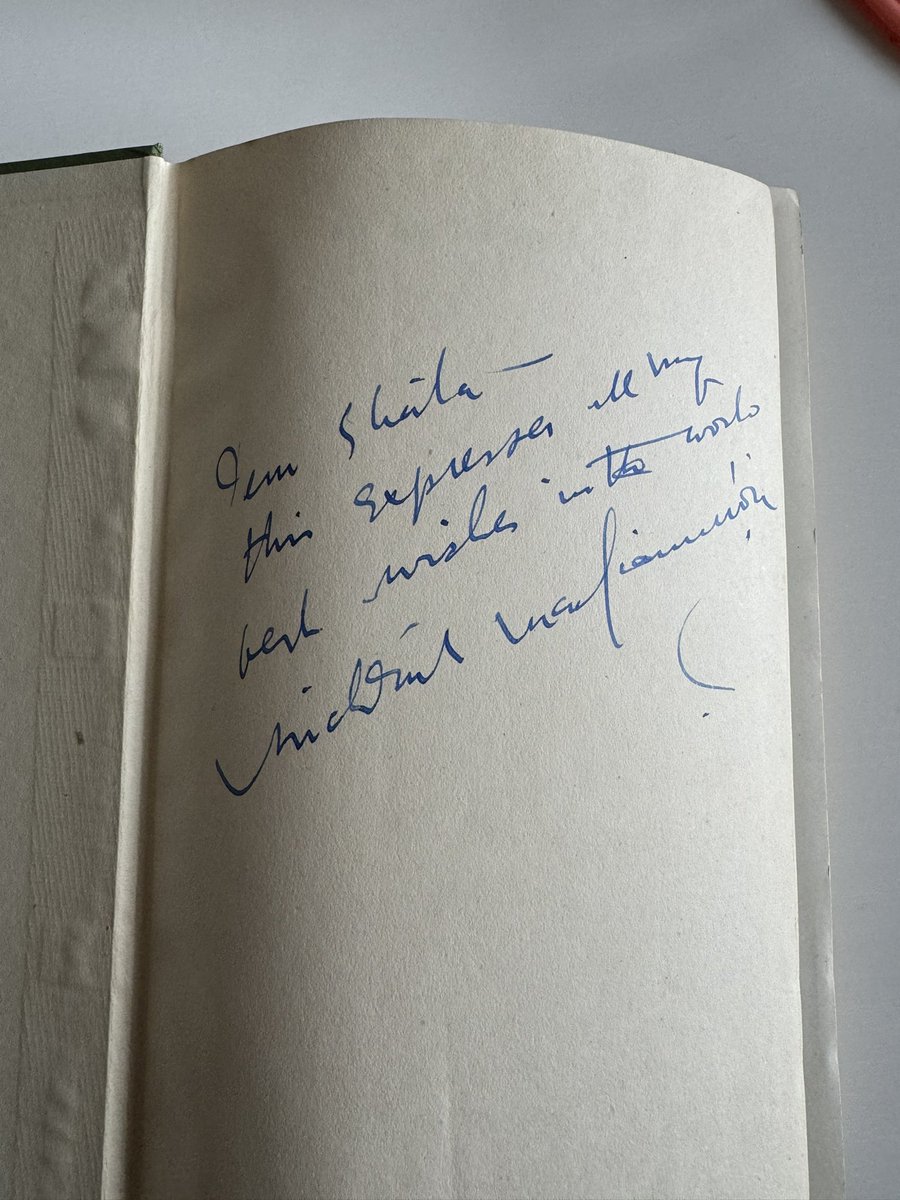 Dear Sheila —
this expresses all my
best wishes in the world
Micheál MacLiammóir